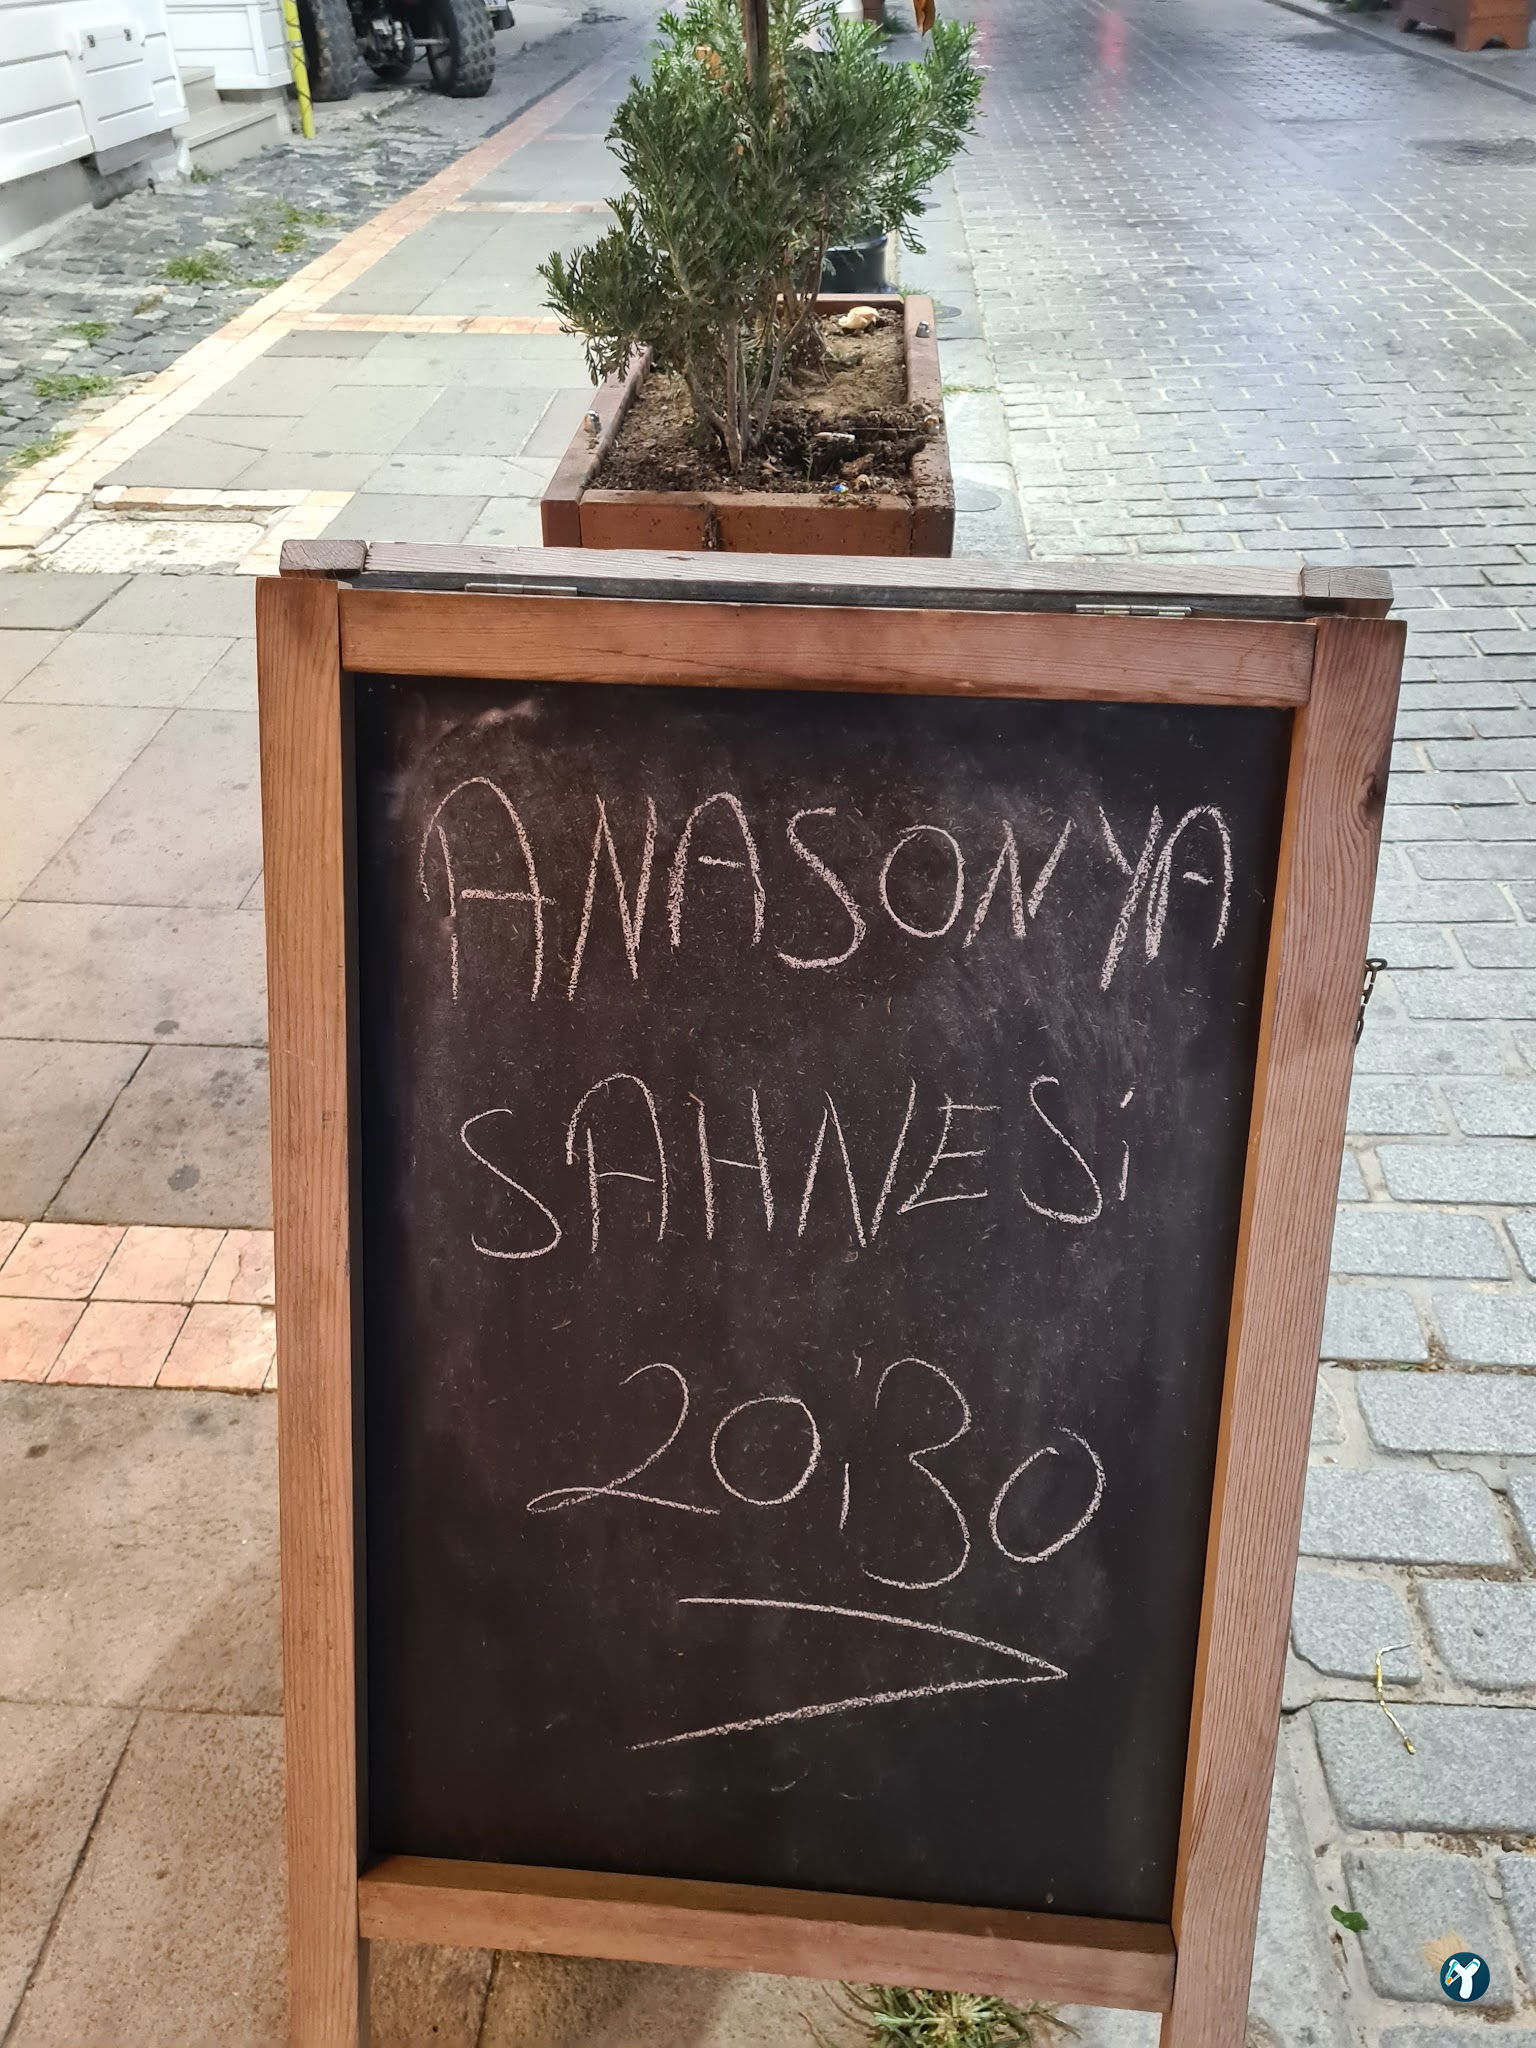 ANASONYA
SAHNESİ
20:30